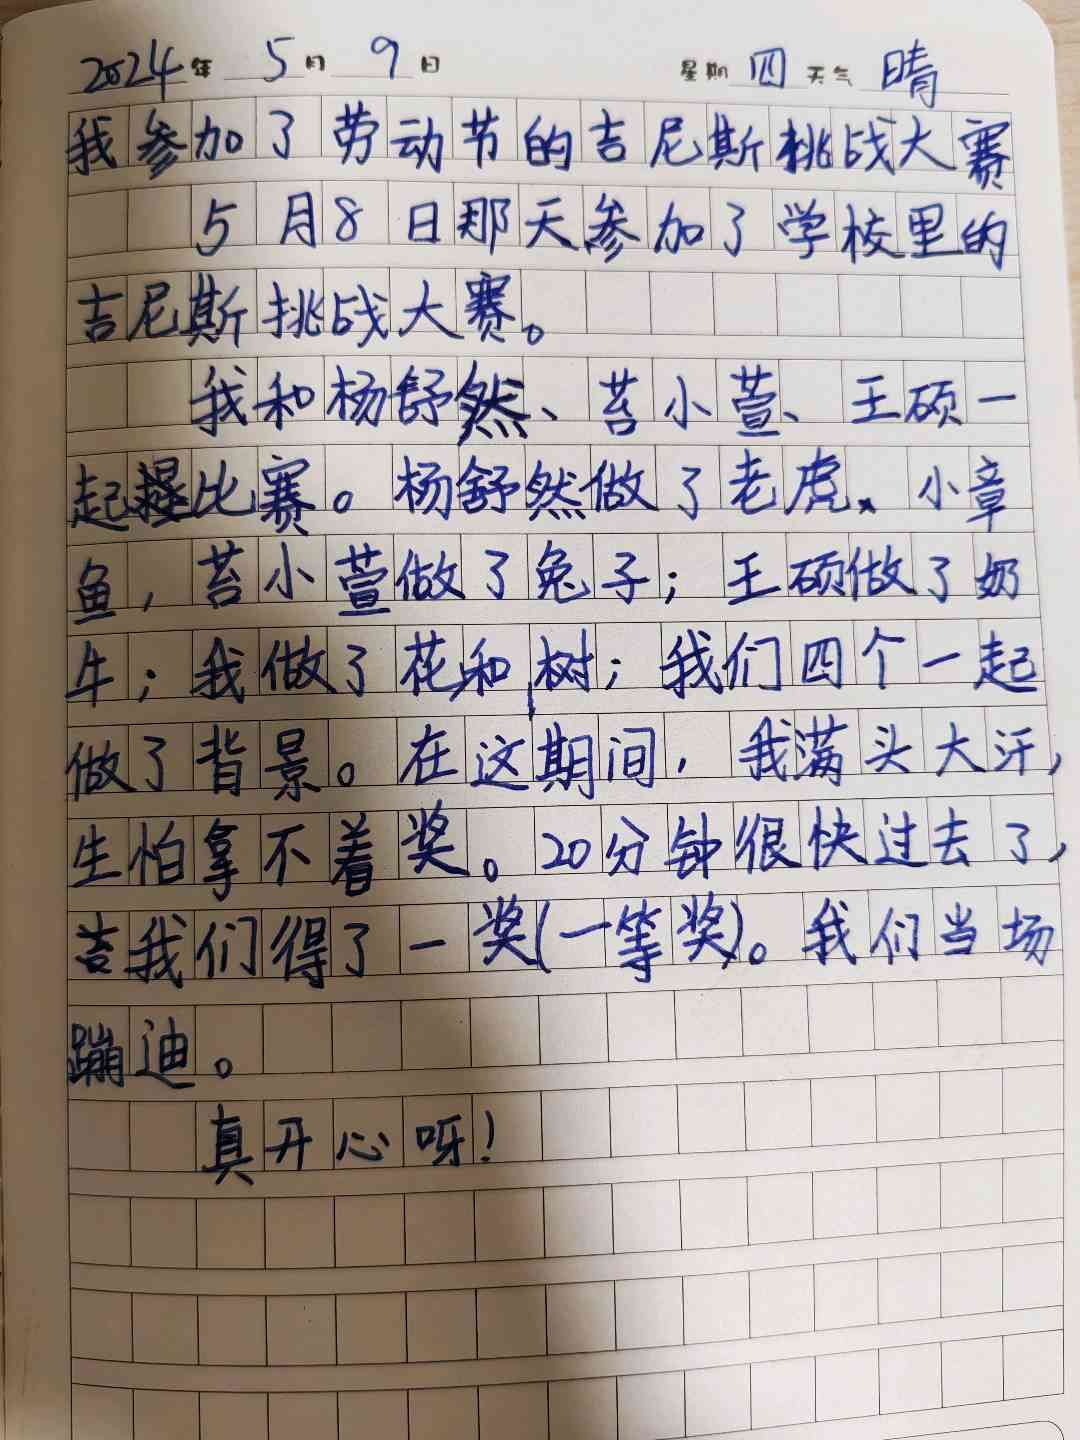 2024年 5月 9日 星期四 天气 晴
我参加了劳动节的吉尼斯挑战大赛
5月8日那天参加了学校里的
吉尼斯挑战大赛。
我和杨舒然、苔小萱、王硕一
起比赛。杨舒然做了老虎、小章
鱼,苔小萱做了兔子;王硕做了奶
牛;我做了花和树;我们四个一起
做了背景。在这期间,我满头大汗,
生怕拿不着奖。20分钟很快过去了,
我们得了一奖(一等奖)。我们当场
蹦迪。
真开心呀!